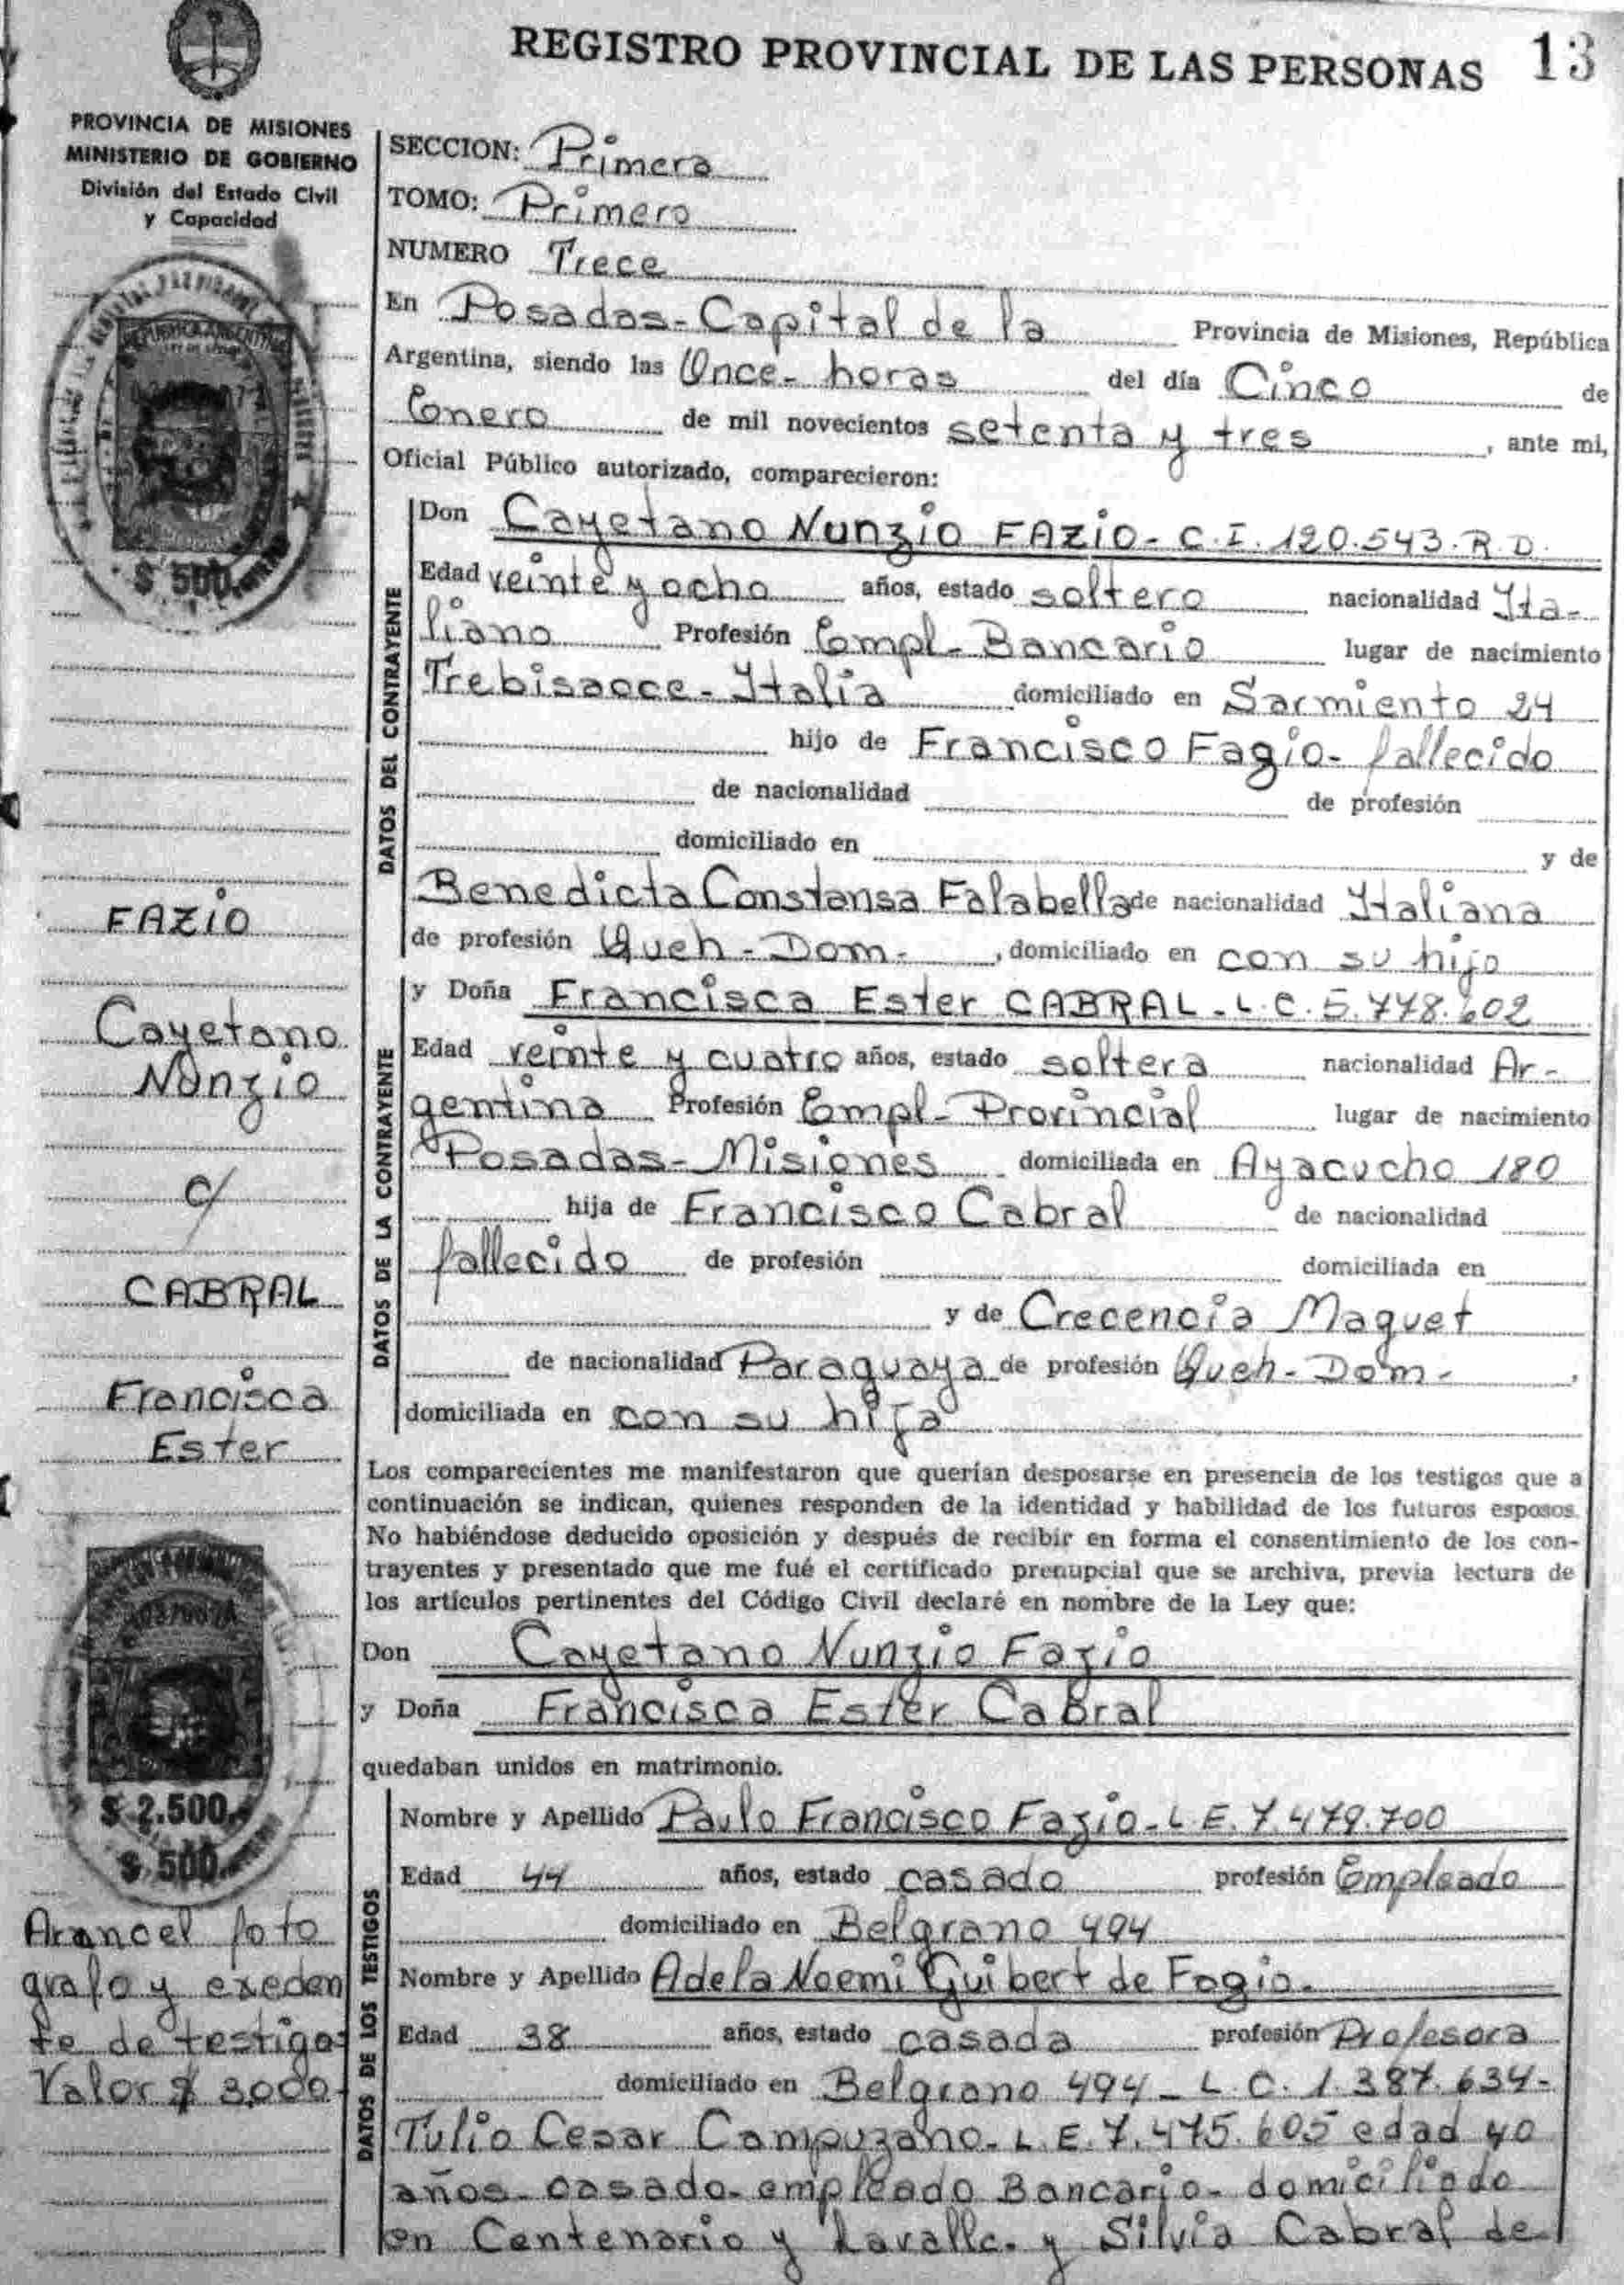 REGISTRO PROVINCIAL DE LAS PERSONAS 13
PROVINCIA DE MISIONES
MINISTERIO DE GOBIERNO
División del Estado Civil
y Capacidad
$ 500.
FAZIO
Cayetano
Nunzio
c/
CABRAL
Francisca
Ester
$ 2.500.
$ 500.
Arancel foto
grafo y exeden
te de testigos
Valor $ 3,000-
SECCION: Primera
TOMO: Primero
NUMERO Trece
En Posadas - Capital de la Provincia de Misiones, República
Argentina, siendo las Once - horas del día Cinco de
Enero de mil novecientos setenta y tres, ante mi,
Oficial Público autorizado, comparecieron:
DATOS DEL CONTRAYENTE
Don Cayetano Nunzio FAZIO - C.I. 120.543. R.D.
Edad veinte y ocho años, estado soltero nacionalidad Ita-
liano Profesión Empl - Bancario lugar de nacimiento
Trebisaoce - Italia domiciliado en Sarmiento 24
hijo de Francisco Fazio - fallecido
de nacionalidad de profesión
domiciliado en y de
Benedicta Constansa Falabella de nacionalidad Italiana
de profesión Queh - Dom -, domiciliado en con su hijo
DATOS DE LA CONTRAYENTE
y Doña Francisca Ester CABRAL - L.C. 5.778.602
Edad veinte y cuatro años, estado soltera nacionalidad Ar-
gentina Profesión Empl - Provincial lugar de nacimiento
Posadas - Misiones domiciliada en Ayacucho 180
hija de Francisco Cabral de nacionalidad
fallecido de profesión domiciliada en
y de Crecencia Maquet
de nacionalidad Paraguaya de profesión Queh - Dom -,
domiciliada en con su hija
Los comparecientes me manifestaron que querían desposarse en presencia de los testigos que a
continuación se indican, quienes responden de la identidad y habilidad de los futuros esposos.
No habiéndose deducido oposición y después de recibir en forma el consentimiento de los con-
trayentes y presentado que me fué el certificado prenupcial que se archiva, previa lectura de
los artículos pertinentes del Código Civil declaré en nombre de la Ley que:
Don Cayetano Nunzio Fazio
y Doña Francisca Ester Cabral
quedaban unidos en matrimonio.
DATOS DE LOS TESTIGOS
Nombre y Apellido Paulo Francisco Fazio - L.E. 7.479.700
Edad 44 años, estado casado profesión Empleado
domiciliado en Belgrano 494
Nombre y Apellido Adela Noemi Guibert de Fazio.
Edad 38 años, estado casada profesión Profesora
domiciliado en Belgrano 494 - L.C. 1.387.634-
Tulio Cesar Campuzano - L.E. 7.475.605 edad 40
años - casado - empleado Bancario - domiciliado
en Centenario y Lavalle - y Silvia Cabral de